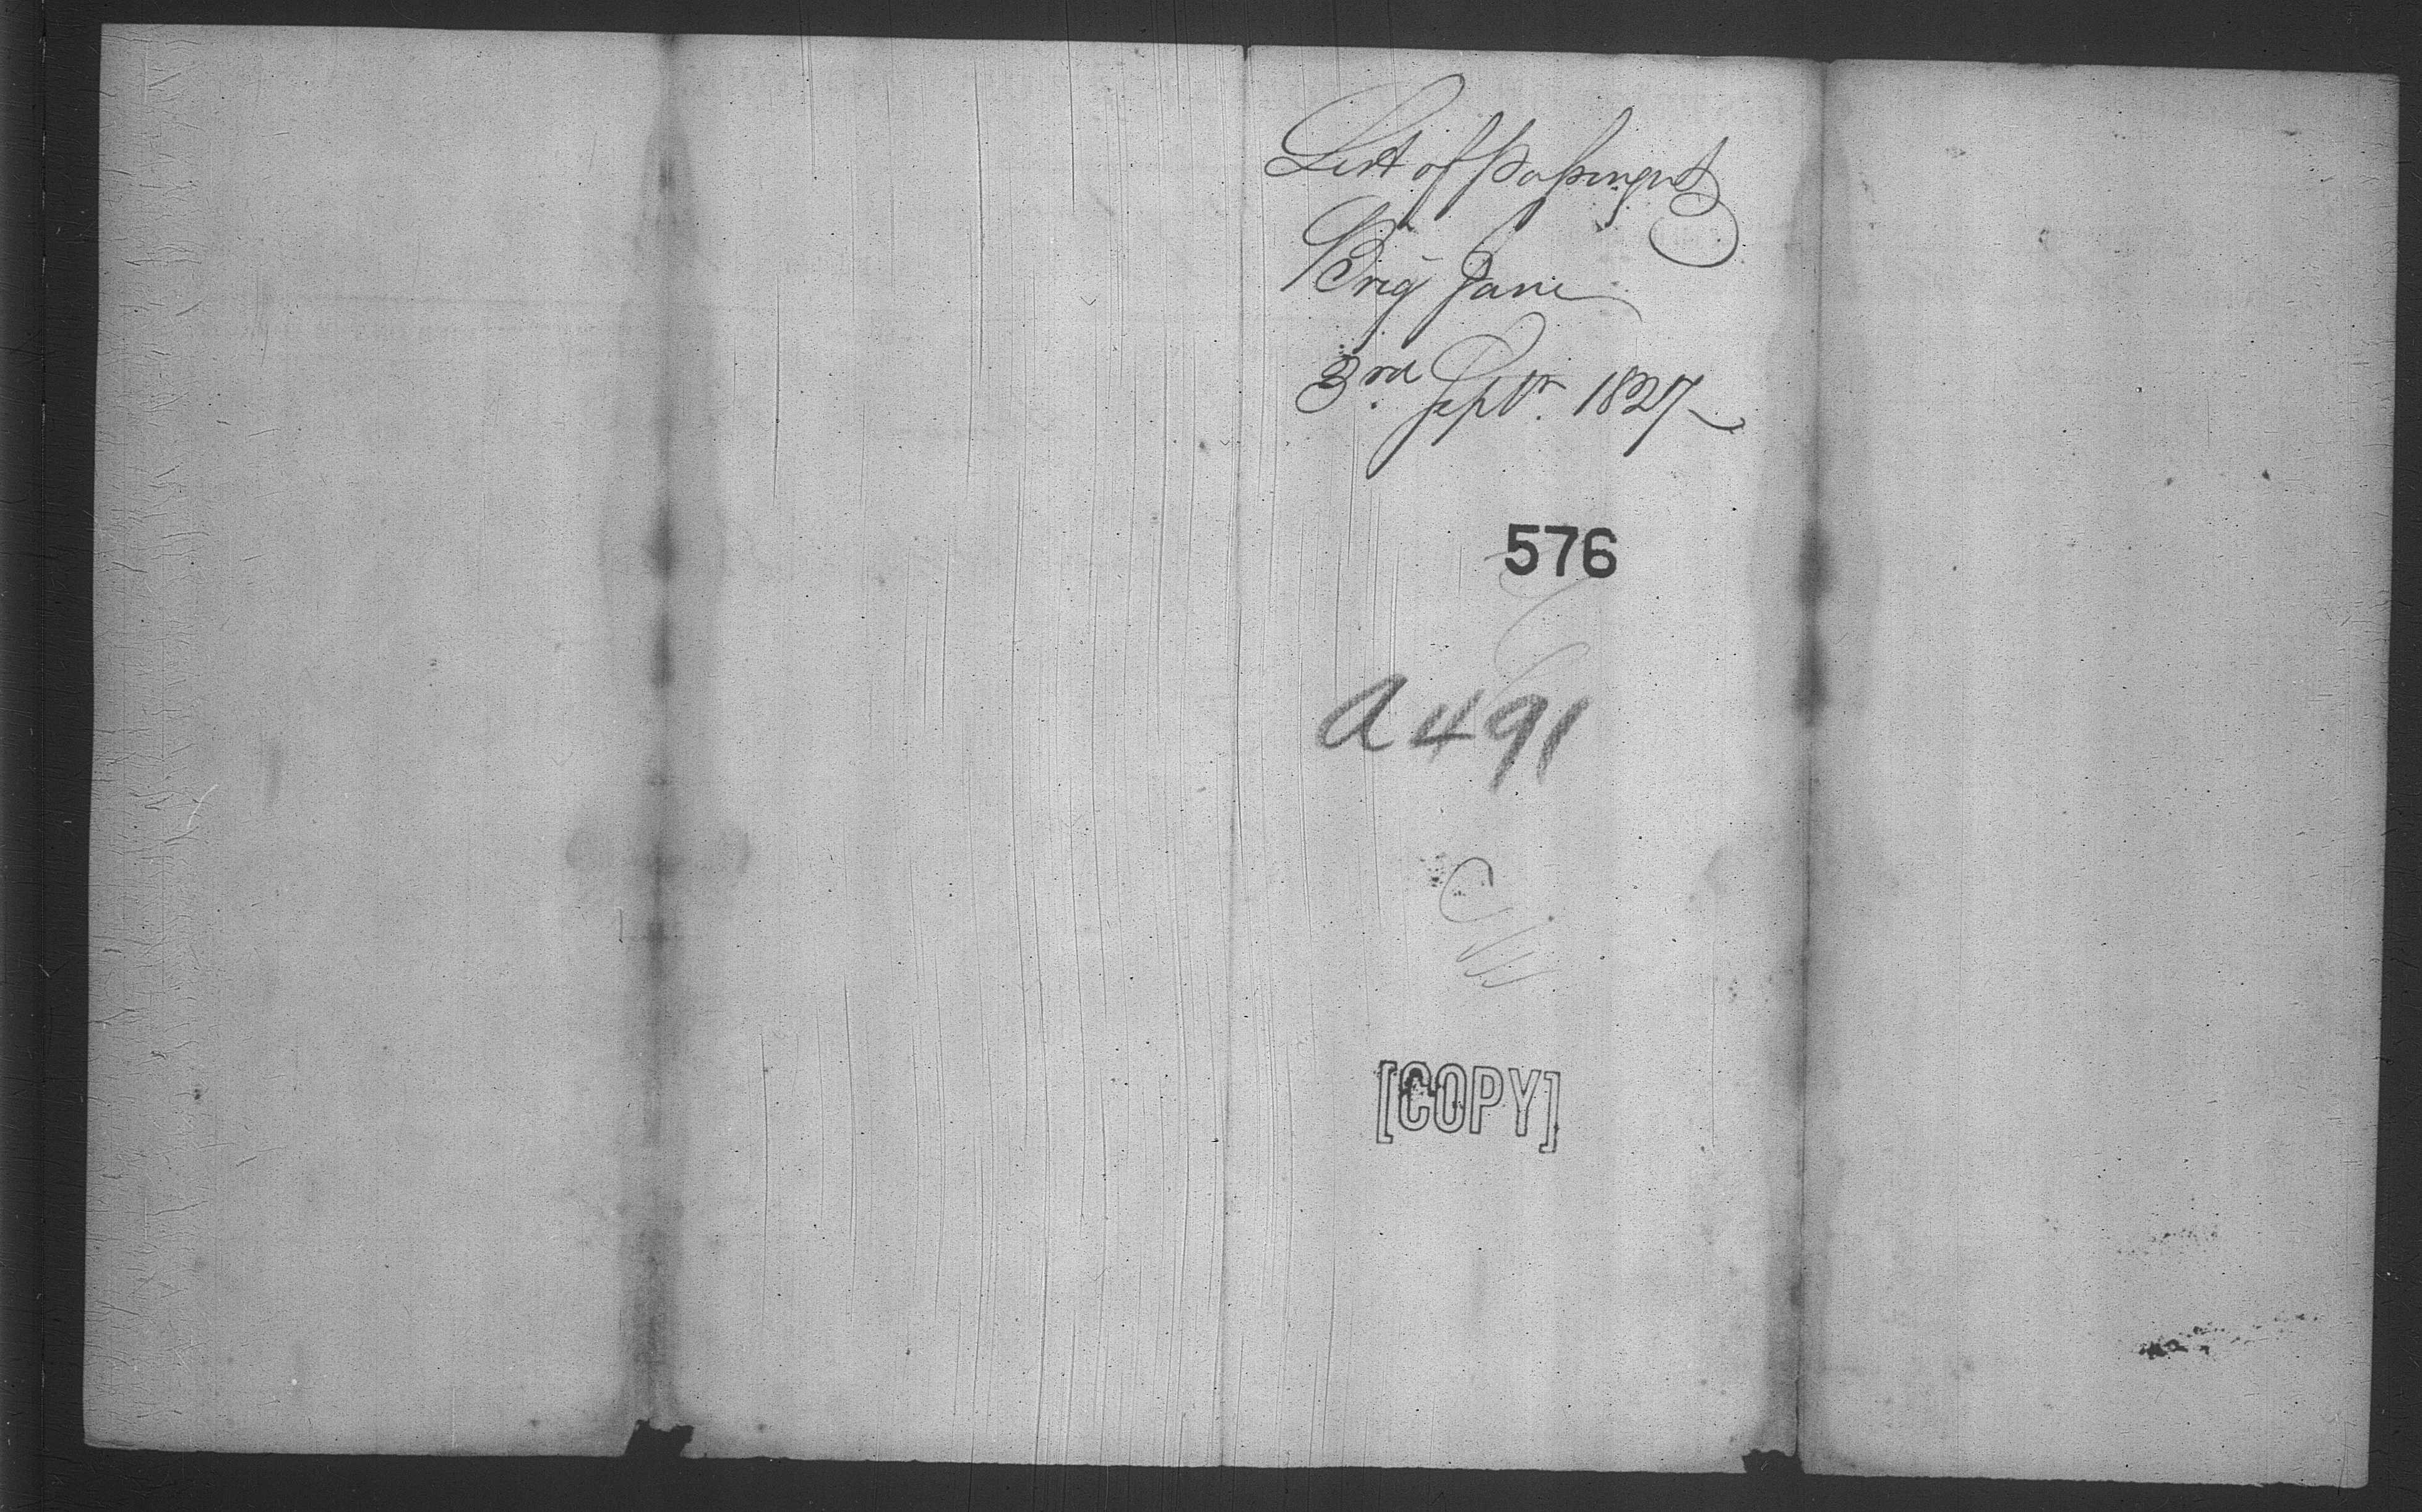 List of Passengers
Brig Jane
3rd Septr. 1827
576
A 491
[COPY]